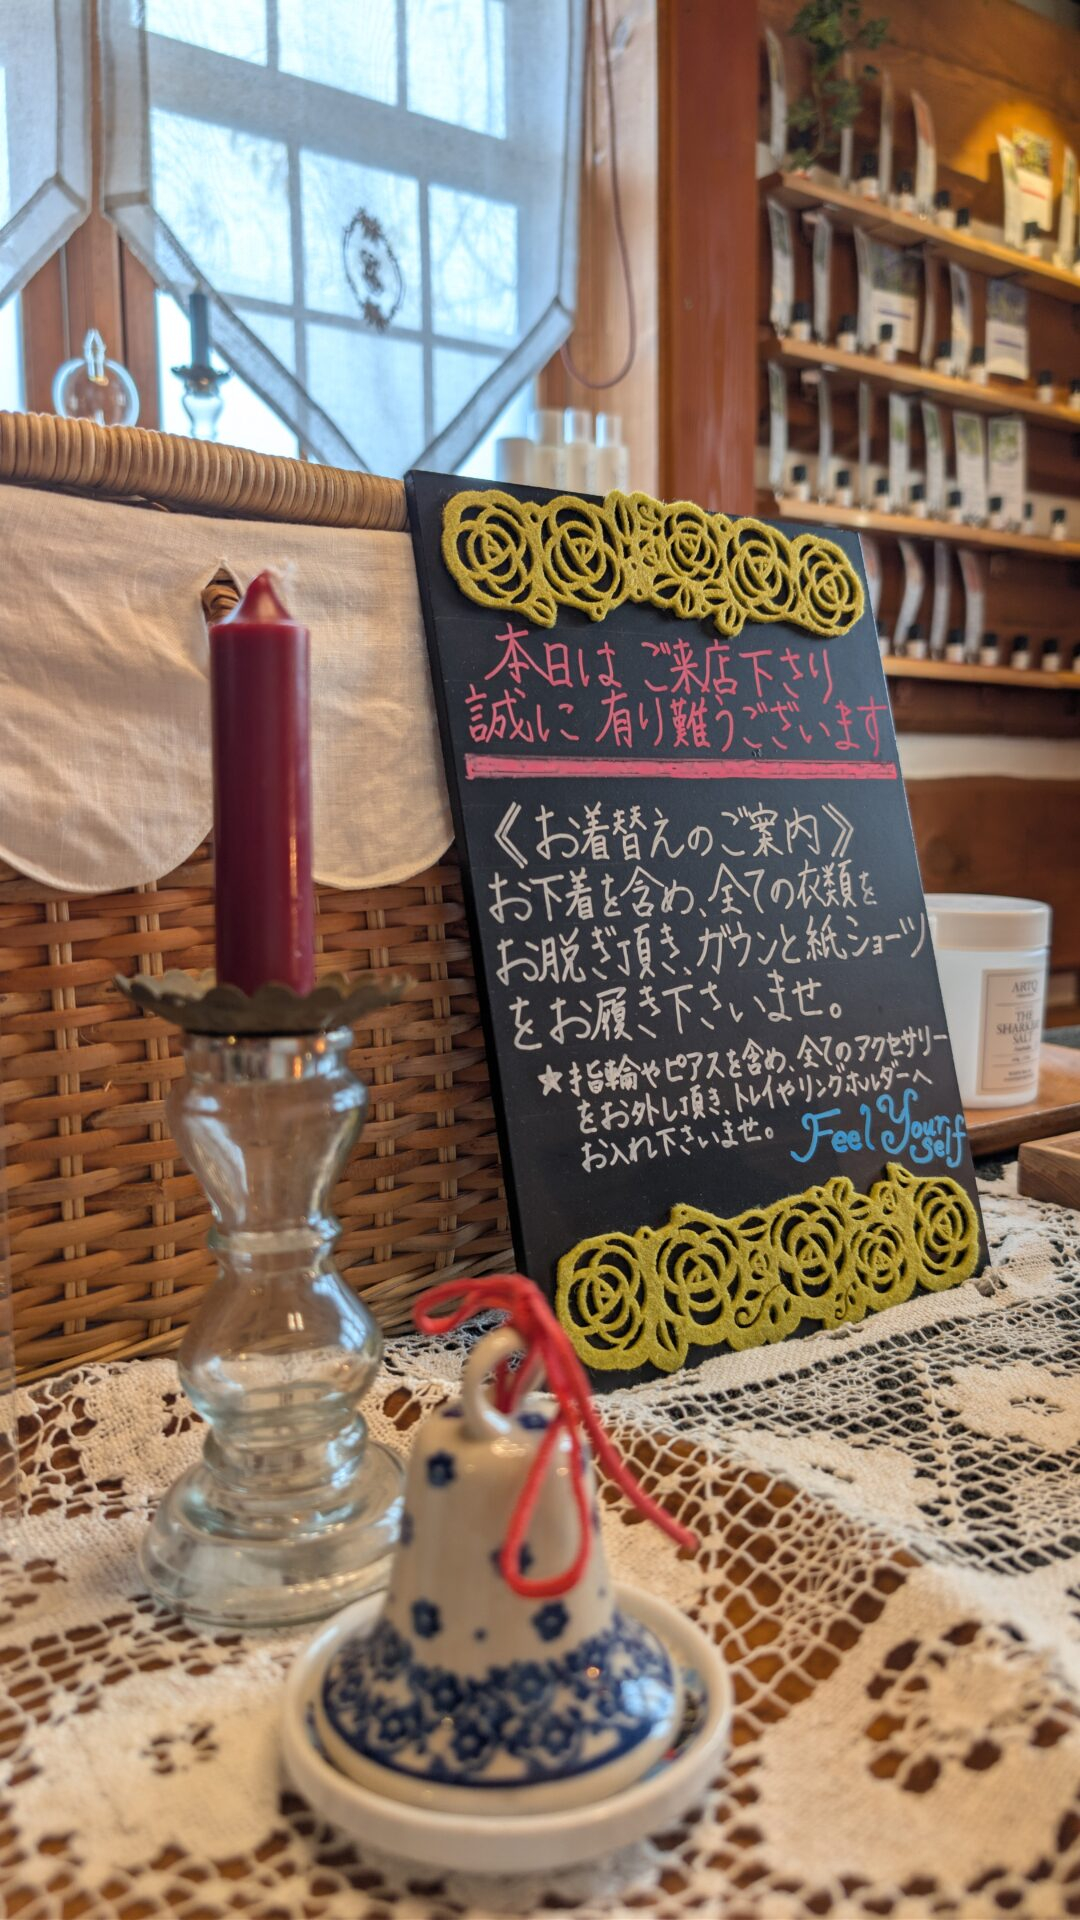 本日は ご来店下さり
誠に 有り難うございます
《お着替えのご案内》
お下着を含め、全ての衣類を
お脱ぎ頂き、ガウンと紙ショーツ
をお履き下さいませ。
★指輪やピアスを含め、全てのアクセサリー
をお外し頂き、トレイやリングホルダーへ
お入れ下さいませ。
Feel Your
self
ARTQ
THE
SALT